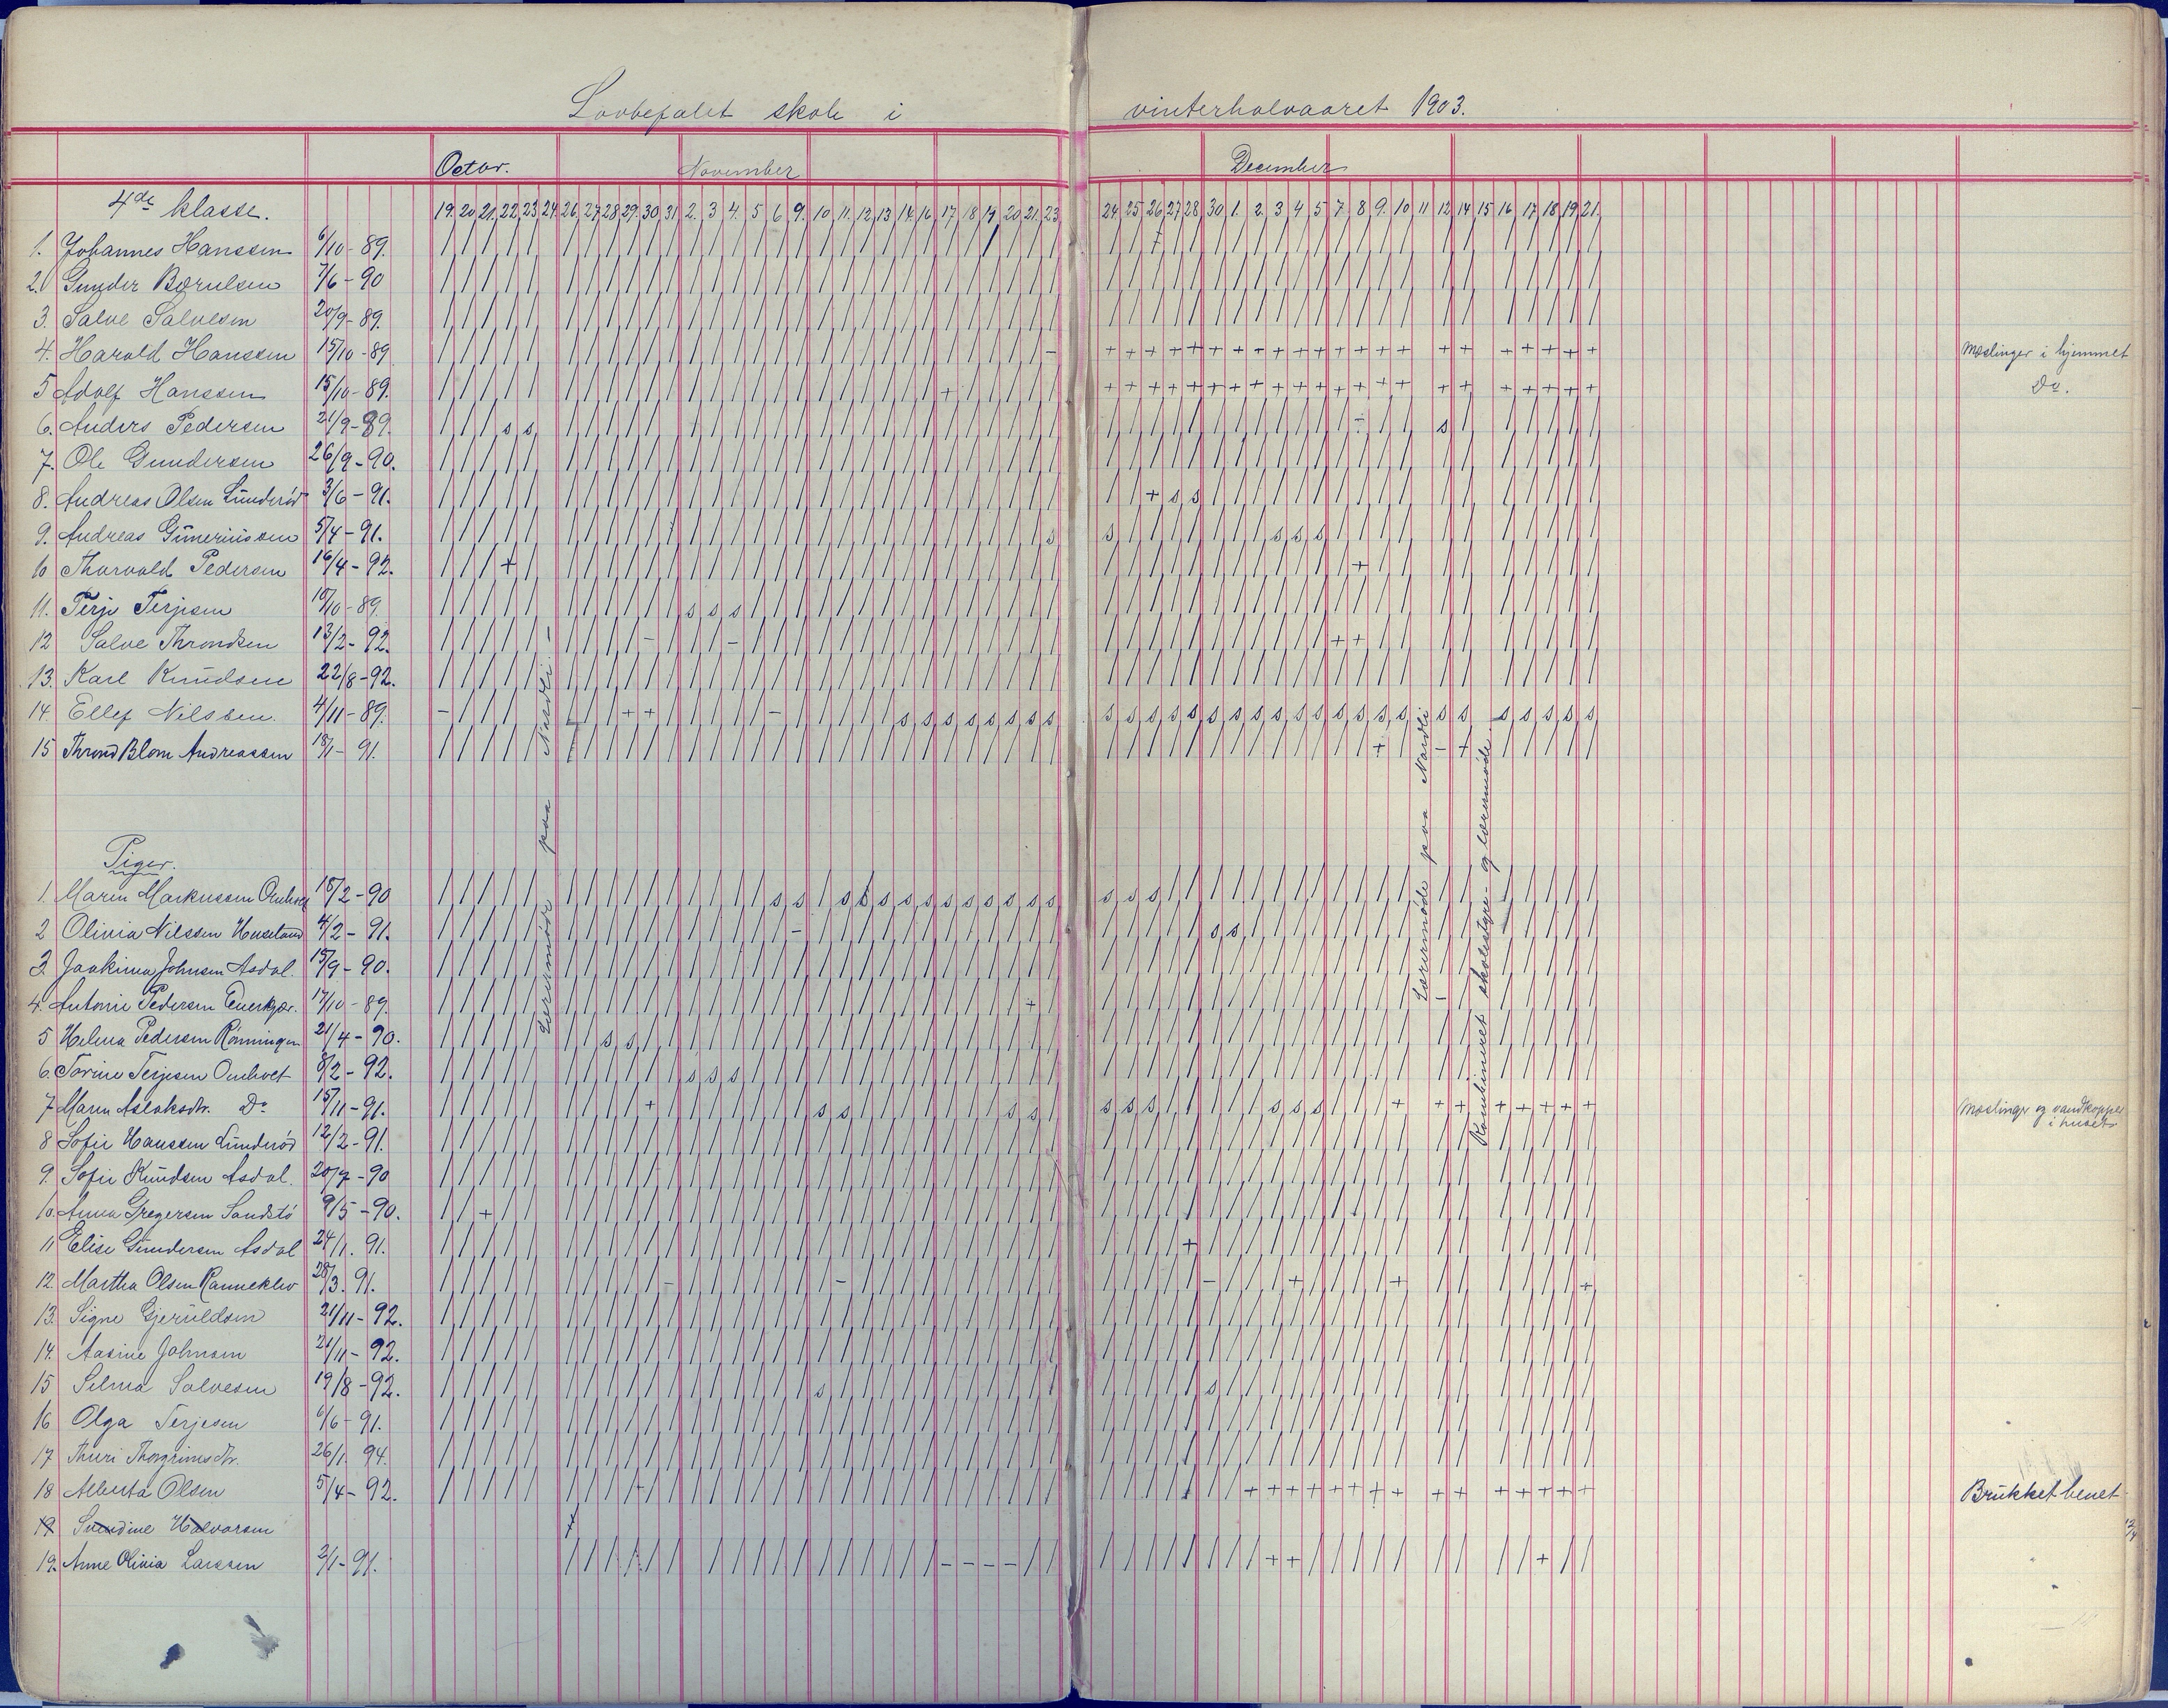 Lovbefalet skole i vinterhalvaaret 1903.
Octbr. November December
4de klasse. 19. 20. 21. 22. 23. 24. 26. 27. 28. 29. 30 31 2. 3 4. 5 6. 9. 10 11. 12. 13 14. 16. 17. 18. 19 20. 21. 23. 24. 25. 26. 27. 28. 30 1. 2. 3 4 5 7. 8. 9. 10 11 12. 14 15 16. 17. 18. 19. 21.
1. Johannes Hanssen 6/10-89.
2. Gunder Børulsen 7/6-90
3. Salve Salvesen 20/9-89.
4. Harald Hanssen 15/10-89 Mæslinger i hjemmet
5 Adolf Hanssen 15/10-89. Do.
6. Anders Pedersen 21/9-89.
7. Ole Gundersen 26/9-90.
8. Andreas Olsen Lunderød 3/6-91.
9. Andreas Guneriussen 5/4-91.
10 Thorvald Pedersen 16/4-92.
11. Terje Terjesen 10/10-89.
12 Salve Throndsen 13/2-92.
13. Karl Knudsen 22/8-92.
14. Ellef Nilssen. 4/11-89.
15 Thrond Blom Andreassen 18/1-91.
Lærermøde paa Nardli
Lærermøde paa Nardli
Kombineret skolestyre- og lærermøde.
Piger.
1. Maren Markussen Omholt 15/2-90
2 Olivia Nilssen Huseland 4/2-91.
3. Joakima Johnsen Asdal. 15/9-90.
4. Antonie Pedersen 17/10-89.
5 Helena Pedersen Rønningen 21/4-90.
6. Torine Terjesen Omholt 8/2-92.
7 Maren Aslaksdtr. Do 15/11-91. Mæslinger og vandkopper i huset
8 Sofie Hanssen Lunderød 12/2-91.
9. Sofie Knudsen Asdal. 20/7-90
10. Anna Gregersen Sandstø 9/5-90.
11 Elise Gundersen Asdal 24/1. 91.
12. Martha Olsen Ranneklev 28/3. 91.
13. Signe Gjeruldsen 21/11-92.
14. Aasine Johnsen 21/11-92.
15 Selma Salvesen 19/8-92.
16 Olga Terjesen 6/6-91.
17 Thuri Thorgrimsdtr. 26/1. 94.
18 Alberta Olsen 5/4-92. Brukket benet
19 Sundine Halvorsen
19. Anne Olivia Larssen 2/1-91.